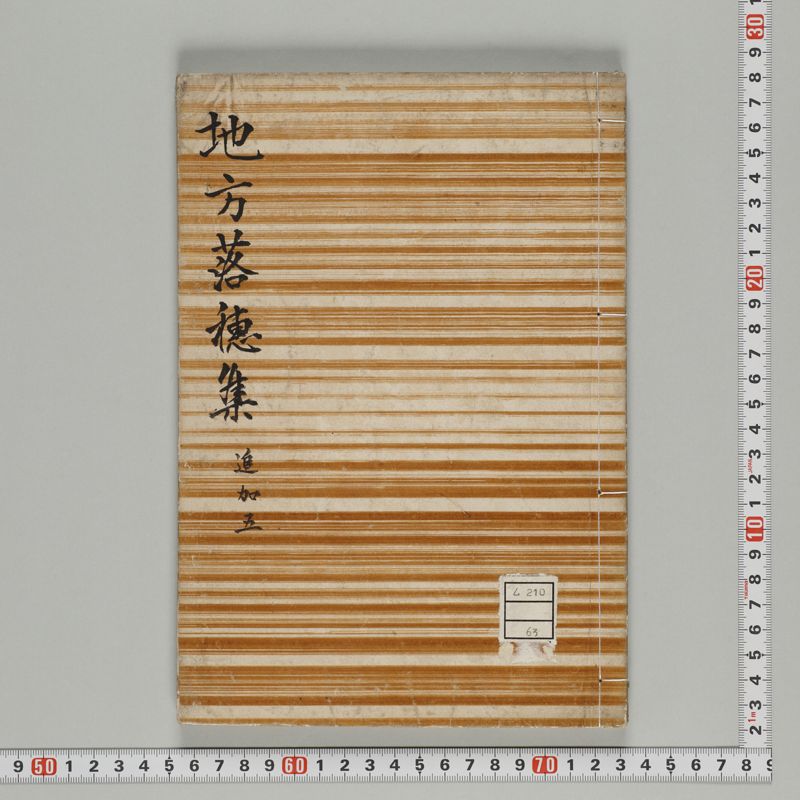 地方落穗集
追加五
ム 210
63
30
9
8
7
6
5
4
3
2
1
20
9
8
7
6
5
4
3
2
1
10
9
8
7
6
5
4
3
2
1m
1
2
3
9 50 1 2 3 4 5 6 7 8 9 60 1 2 3 4 5 6 7 8 9 70 1 2 3 4 5 6 7 8 9